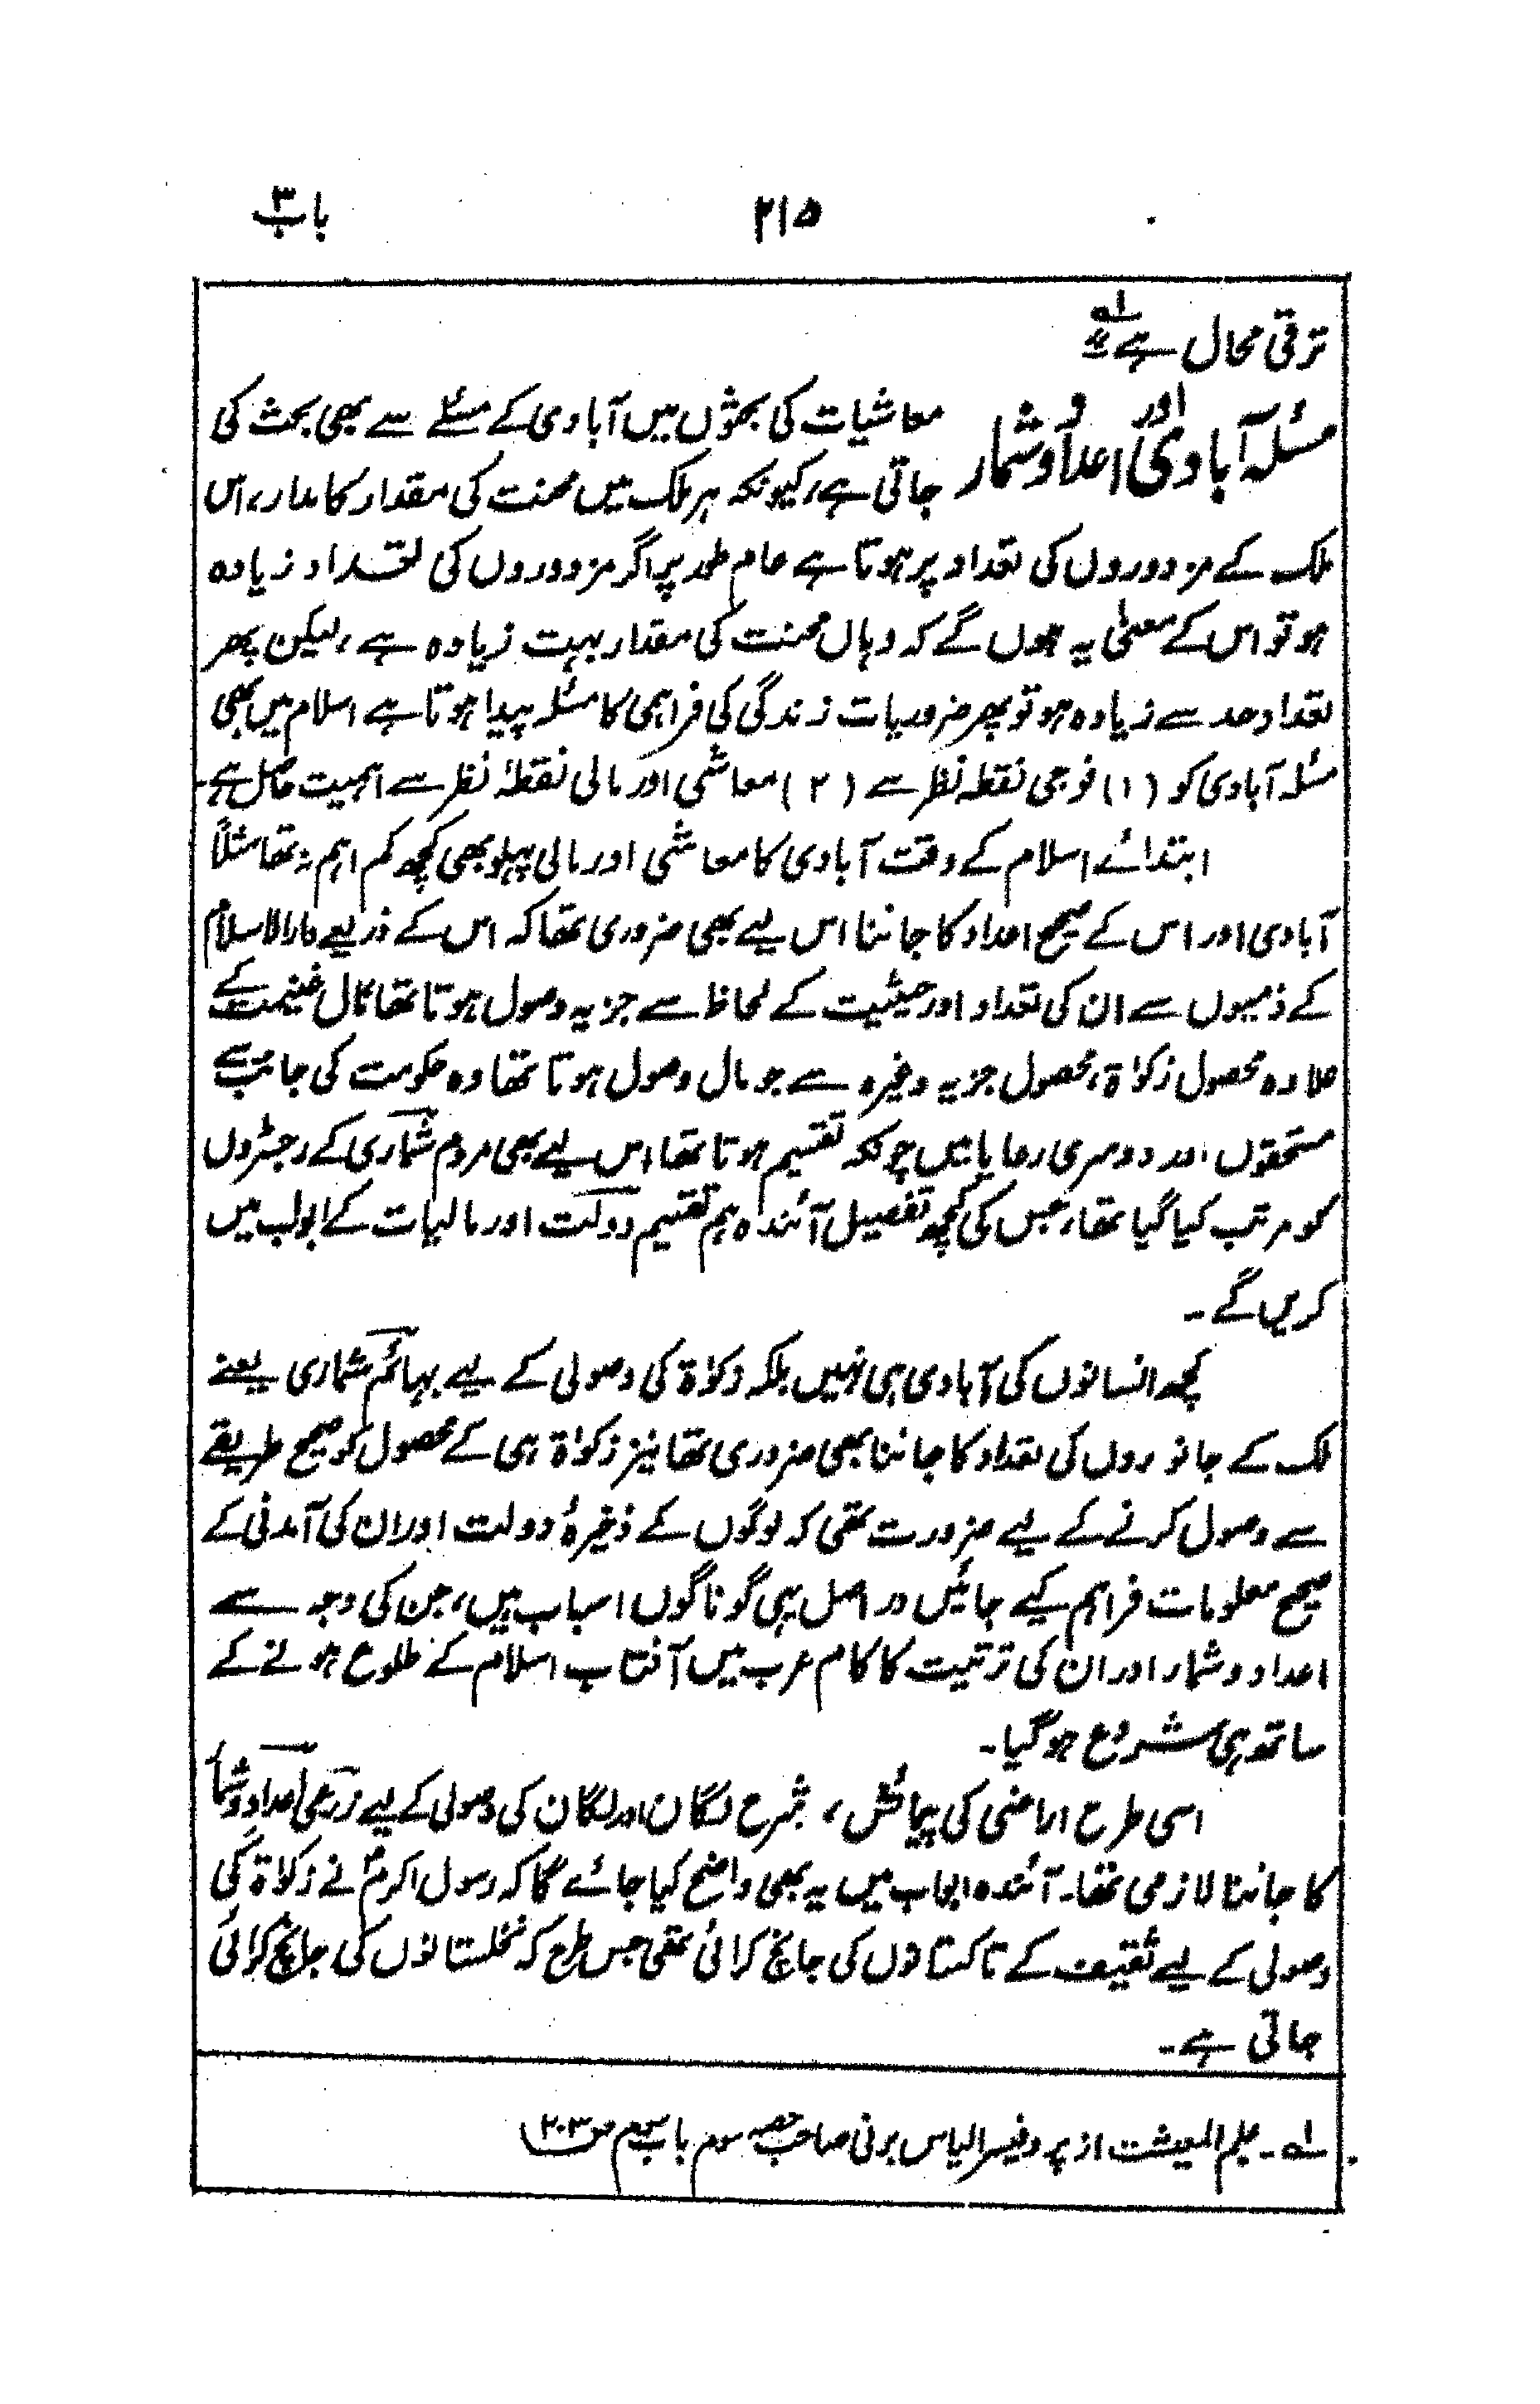 باب ۳
۲۱۵
ترقی محال ہے ؎۱
مسئلہ آبادی اور اعداد و شمار
معاشیات کی بحثوں میں آبادی کے مسئلے سے بھی بحث کی
جاتی ہے، کیونکہ ہر ملک میں محنت کی مقدار کا مدار، اس
ملک کے مزدوروں کی تعداد پر ہوتا ہے عام طور پر اگر مزدوروں کی تعداد زیادہ
ہو تو اس کے معنیٰ یہ ہوں گے کہ وہاں محنت کی مقدار بہت زیادہ ہے، لیکن پھر
تعداد حد سے زیادہ ہو تو پھر ضروریات زندگی کی فراہمی کا مسئلہ پیدا ہوتا ہے اسلام میں بھی
مسئلہ آبادی کو (۱) فوجی نقطہ نظر سے (۲) معاشی اور مالی نقطۂ نظر سے اہمیت حاصل ہے۔
ابتدائے اسلام کے وقت آبادی کا معاشی اور مالی پہلو بھی کچھ کم اہم نہ تھا مثلاً
آبادی اور اس کے صحیح اعداد کا جاننا اس لیے بھی ضروری تھا کہ اس کے ذریعے دارالاسلام
کے ذمیوں سے ان کی تعداد اور حیثیت کے لحاظ سے جزیہ وصول ہوتا تھا مال غنیمت کے
علاوہ محصول زکوٰۃ، محصول جزیہ وغیرہ سے جو مال وصول ہوتا تھا وہ حکومت کی جانب سے
مستحقوں اور دوسری رعایا میں چونکہ تقسیم ہوتا تھا اس لیے بھی مردم شماری کے رجسٹروں
کو مرتب کیا گیا تھا، جس کی کچھ تفصیل آئندہ ہم تقسیم دولت اور مالیات کے ابواب میں
کریں گے۔
کچھ انسانوں کی آبادی ہی نہیں بلکہ زکوٰۃ کی وصولی کے لیے بہائم شماری یعنے
ملک کے جانوروں کی تعداد کا جاننا بھی ضروری تھا نیز زکوٰۃ ہی کے محصول کو صحیح طریقے
سے وصول کرنے کے لیے ضرورت تھی کہ لوگوں کے ذخیرۂ دولت اور ان کی آمدنی کے
صحیح معلومات فراہم کیے جائیں در اصل یہی گوناگوں اسباب ہیں، جن کی وجہ سے
اعداد و شمار اور ان کی ترتیب کا کام عرب میں آفتاب اسلام کے طلوع ہونے کے
ساتھ ہی شروع ہوگیا۔
اسی طرح اراضی کی پیمائش، شرح لگان اور لگان کی وصولی کے لیے زرعی اعداد و شمار
کا جاننا لازمی تھا۔ آئندہ ابواب میں یہ بھی واضح کیا جائے گا کہ رسول اکرمؐ نے زکوٰۃ کی
وصولی کے لیے ثقیف کے تاکستانوں کی جانچ کرائی تھی جس طرح کہ نخلستانوں کی جانچ کرائی
جاتی ہے۔
؎۱۔ علم المعیشت از پروفیسر الیاس برنی صاحب حصہ سوم باب سوم ص ۲۰۳